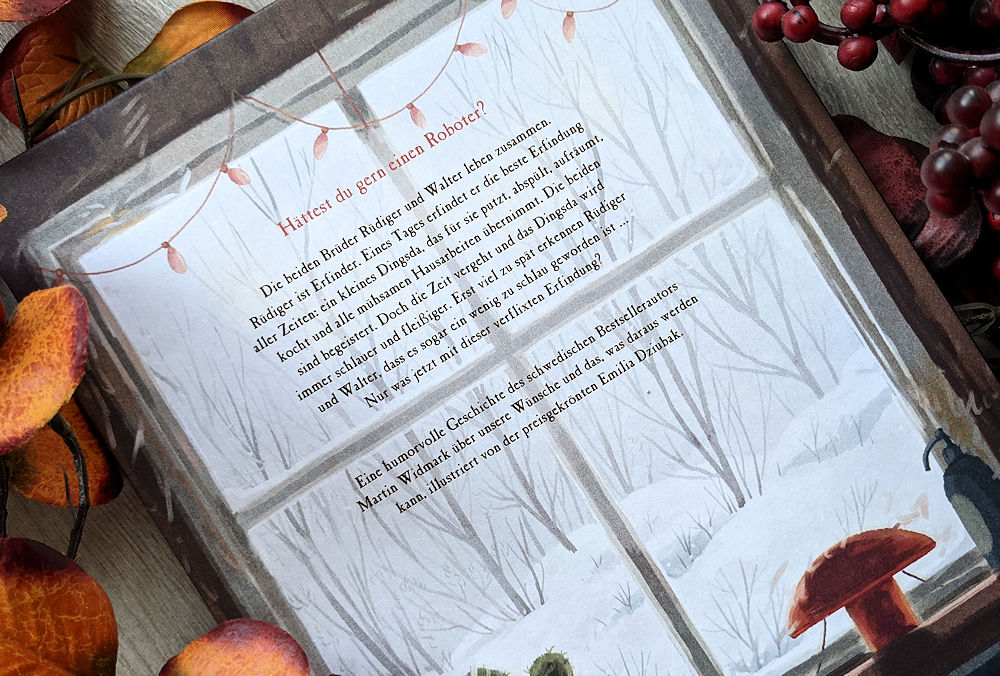 Hättest du gern einen Roboter?
Die beiden Brüder Rüdiger und Walter leben zusammen.
Rüdiger ist Erfinder. Eines Tages erfindet er die beste Erfindung
aller Zeiten: ein kleines Dingsda, das für sie putzt, abspült, aufräumt,
kocht und alle mühsamen Hausarbeiten übernimmt. Die beiden
sind begeistert. Doch die Zeit vergeht und das Dingsda wird
immer schlauer und fleißiger. Erst viel zu spät erkennen Rüdiger
und Walter, dass es sogar ein wenig zu schlau geworden ist ...
Nur was jetzt mit dieser verflixten Erfindung?
Eine humorvolle Geschichte des schwedischen Bestsellerautors
Martin Widmark über unsere Wünsche und das, was daraus werden
kann, illustriert von der preisgekrönten Emilia Dziubak.